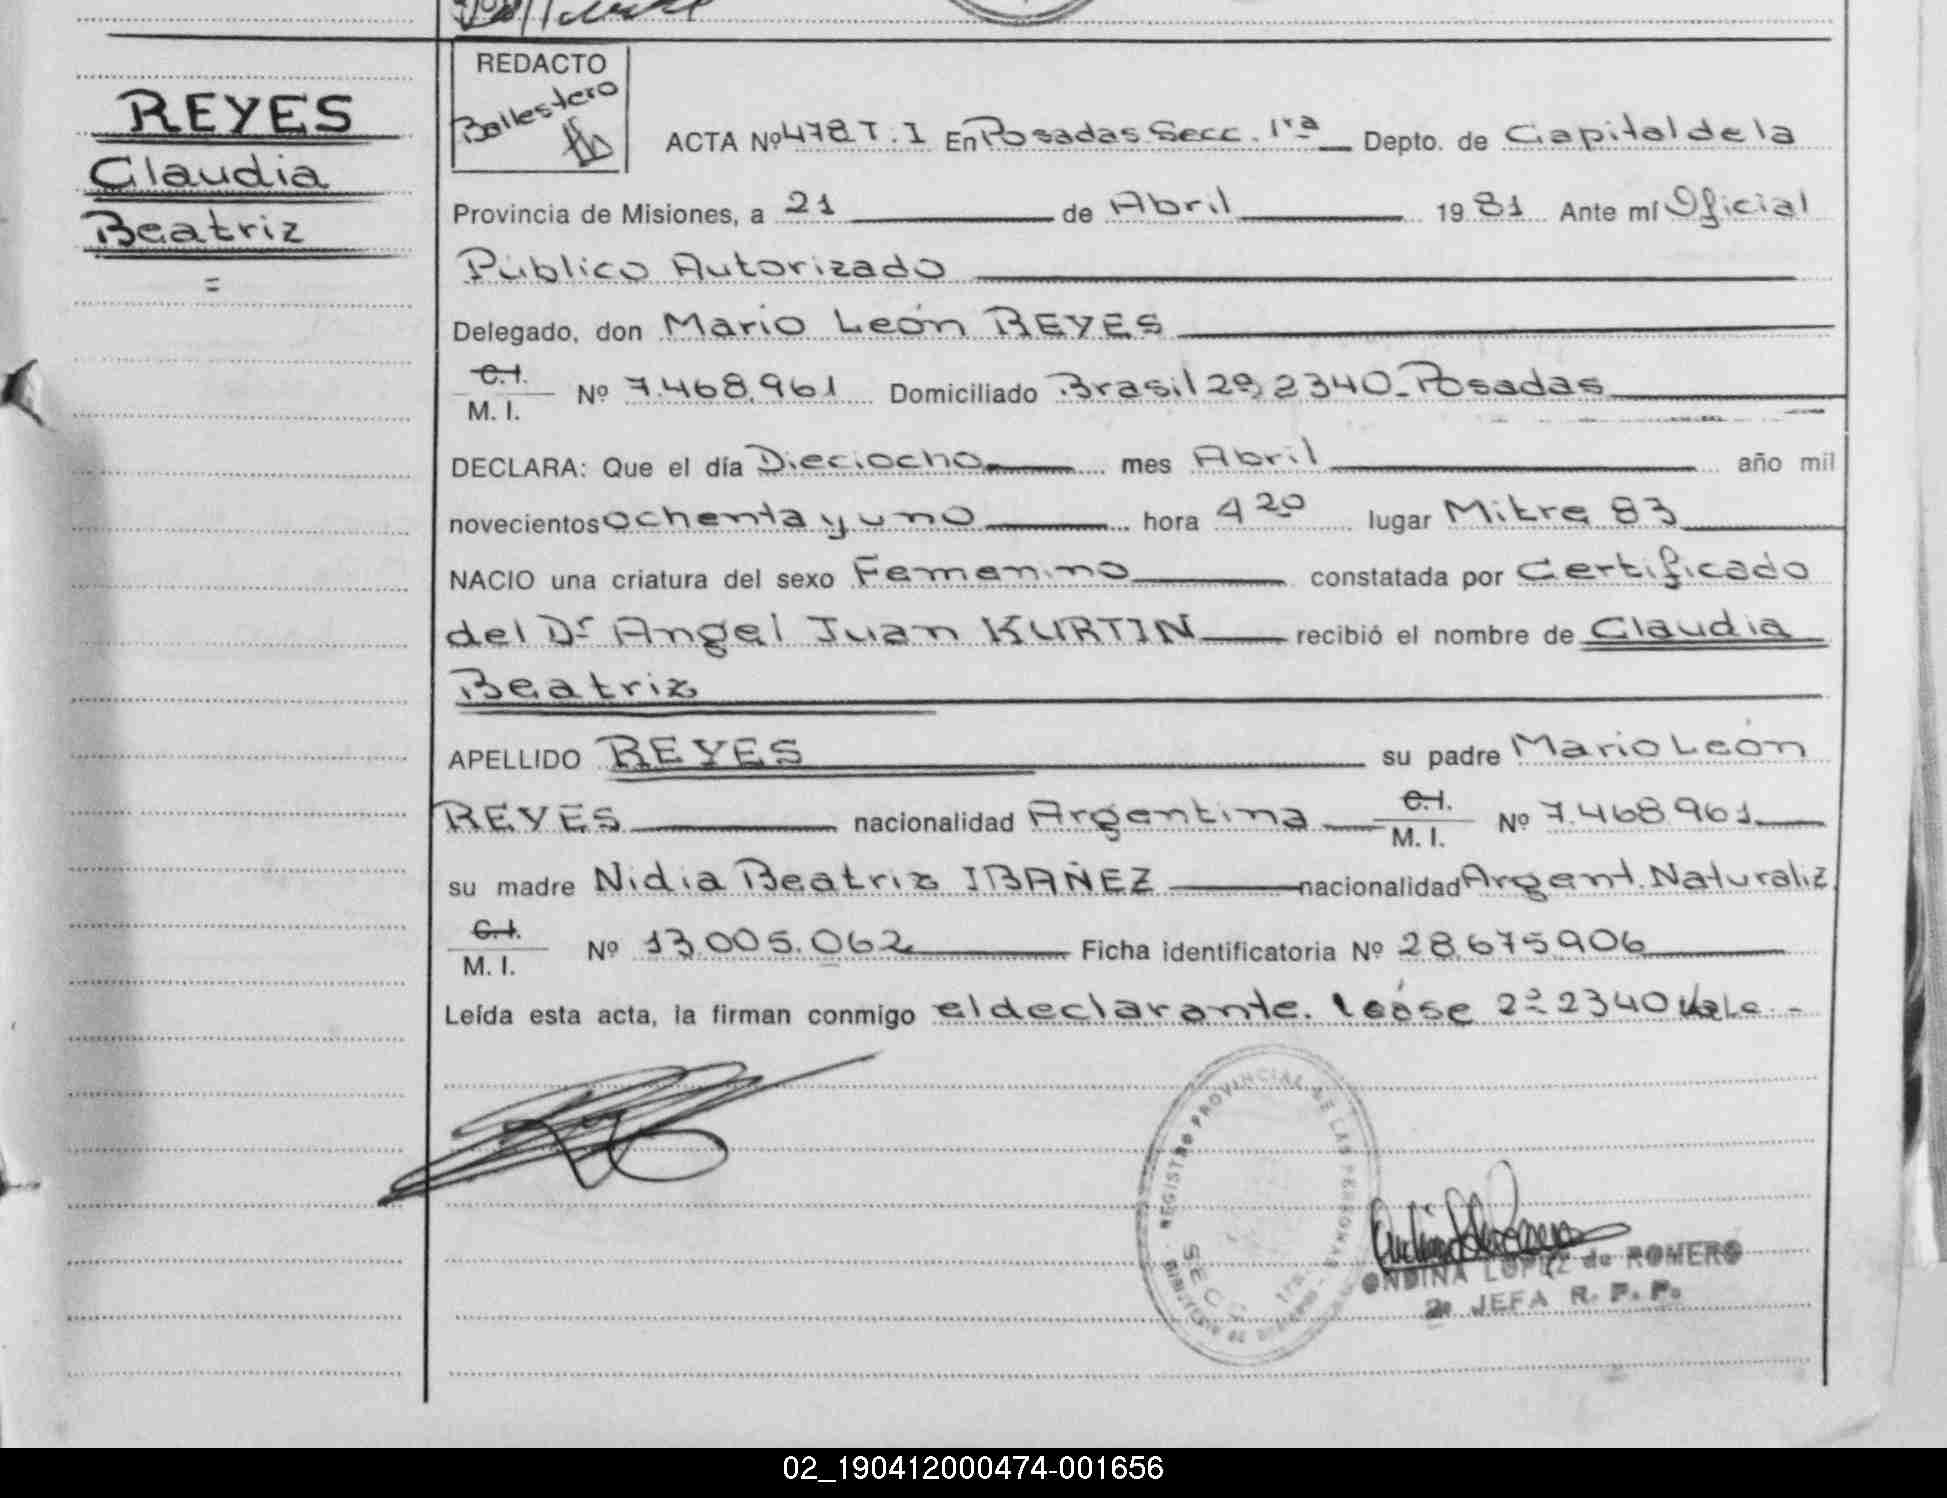 REYES
Claudia
Beatriz
=
REDACTO
Ballestero
ACTA Nº 478 T. I En Posadas Secc. 1ra Depto. de Capital de la
Provincia de Misiones, a 21 de Abril 1981 Ante mí Oficial
Público Autorizado
Delegado, don Mario León REYES
C.I.
M. I. Nº 7.468.961 Domiciliado Brasil 2º, 2340 - Posadas
DECLARA: Que el día Dieciocho mes Abril año mil
novecientos ochenta y uno hora 4 20 lugar Mitre 83
NACIO una criatura del sexo Femenino constatada por Certificado
del Dr Angel Juan KURTIN recibió el nombre de Claudia
Beatriz
APELLIDO REYES su padre Mario León
REYES nacionalidad Argentina C.I. M. I. Nº 7.468.961
su madre Nidia Beatriz IBAÑEZ nacionalidad Argent. Naturaliz
C.I.
M. I. Nº 13.005.062 Ficha identificatoria Nº 28.675.906
Leída esta acta, la firman conmigo el declarante. leáse 2º 2340 Vale. -
REGISTRO PROVINCIAL DE LAS PERSONAS
SECC. 1ra
ONDINA LOPEZ de ROMERO
2a JEFA R. P. P.
02_190412000474-001656